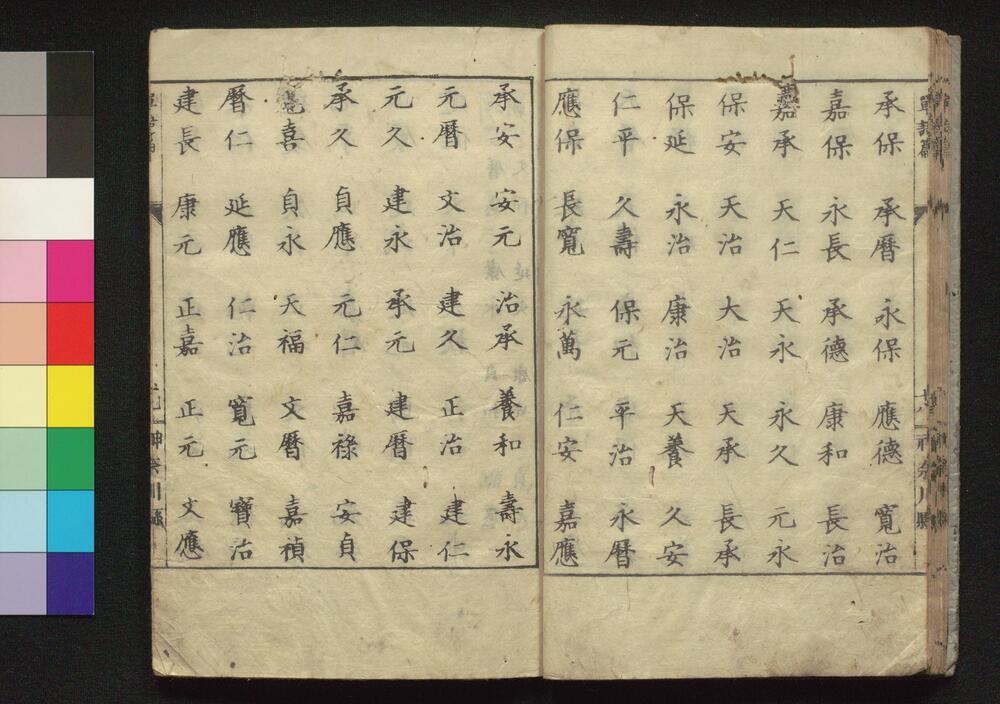 承保 承暦 永保 應德 寬治
嘉保 永長 承德 康和 長治
嘉承 天仁 天永 永久 元永
保安 天治 大治 天承 長承
保延 永治 康治 天養 久安
仁平 久壽 保元 平治 永暦
應保 長寬 永萬 仁安 嘉應
承安 安元 治承 養和 壽永
元暦 文治 建久 正治 建仁
元久 建永 承元 建暦 建保
承久 貞應 元仁 嘉祿 安貞
寬喜 貞永 天福 文暦 嘉禎
暦仁 延應 仁治 寬元 寶治
建長 康元 正嘉 正元 文應